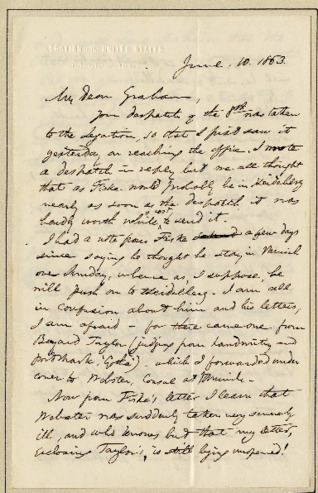 June 10. 1863.
My Dear Graham,
your despatch of the 8th was taken
to the legation, so that I first saw it
yesterday on reaching the office. I wrote
a despatch in reply but we all thought
that as Fiske would probably be in Heidelberg
nearly as soon as the despatch it was
hardly worth while to send it.
I had a note from Fiske a few days
since saying he thought he stay in Munich
over Sunday, whence as, I suppose, he
will push on to Heidelberg. I am all
in confusion about him and his letters,
I am afraid – for there came one from
Bayard Taylor (judging from handwriting and
postmark, 'Gotha') which I forwarded under
cover to Webster, Consul at Munich.
Now from Fiske's letter I learn that
Webster was suddenly taken very seriously
ill, and who knows but that my letter,
enclosing Taylor's, is still lying unopened!